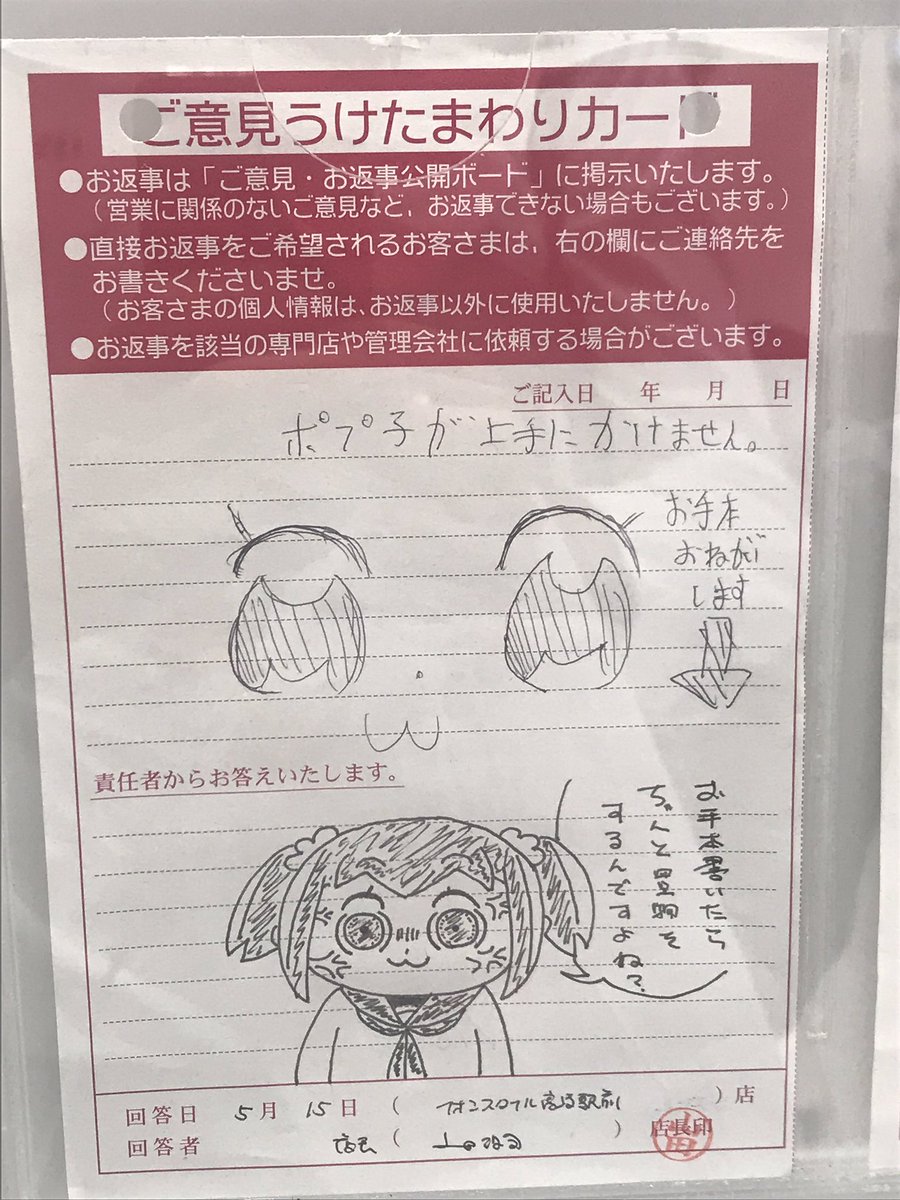 ご意見うけたまわりカード
●お返事は「ご意見・お返事公開ボード」に掲示いたします。
（営業に関係のないご意見など、お返事できない場合もございます。）
●直接お返事をご希望されるお客さまは、右の欄にご連絡先を
お書きくださいませ。
（お客さまの個人情報は、お返事以外に使用いたしません。）
●お返事を該当の専門店や管理会社に依頼する場合がございます。
ご記入日 年 月 日
ポプ子が上手にかけません。
お手本
おねがい
します
責任者からお答えいたします。
お手本書いたら
ちゃんと買物を
するんですよね?
回答日 5月 15日 ( イオンスタイル 駅前 ) 店
回答者 店長 ( ) 店長印